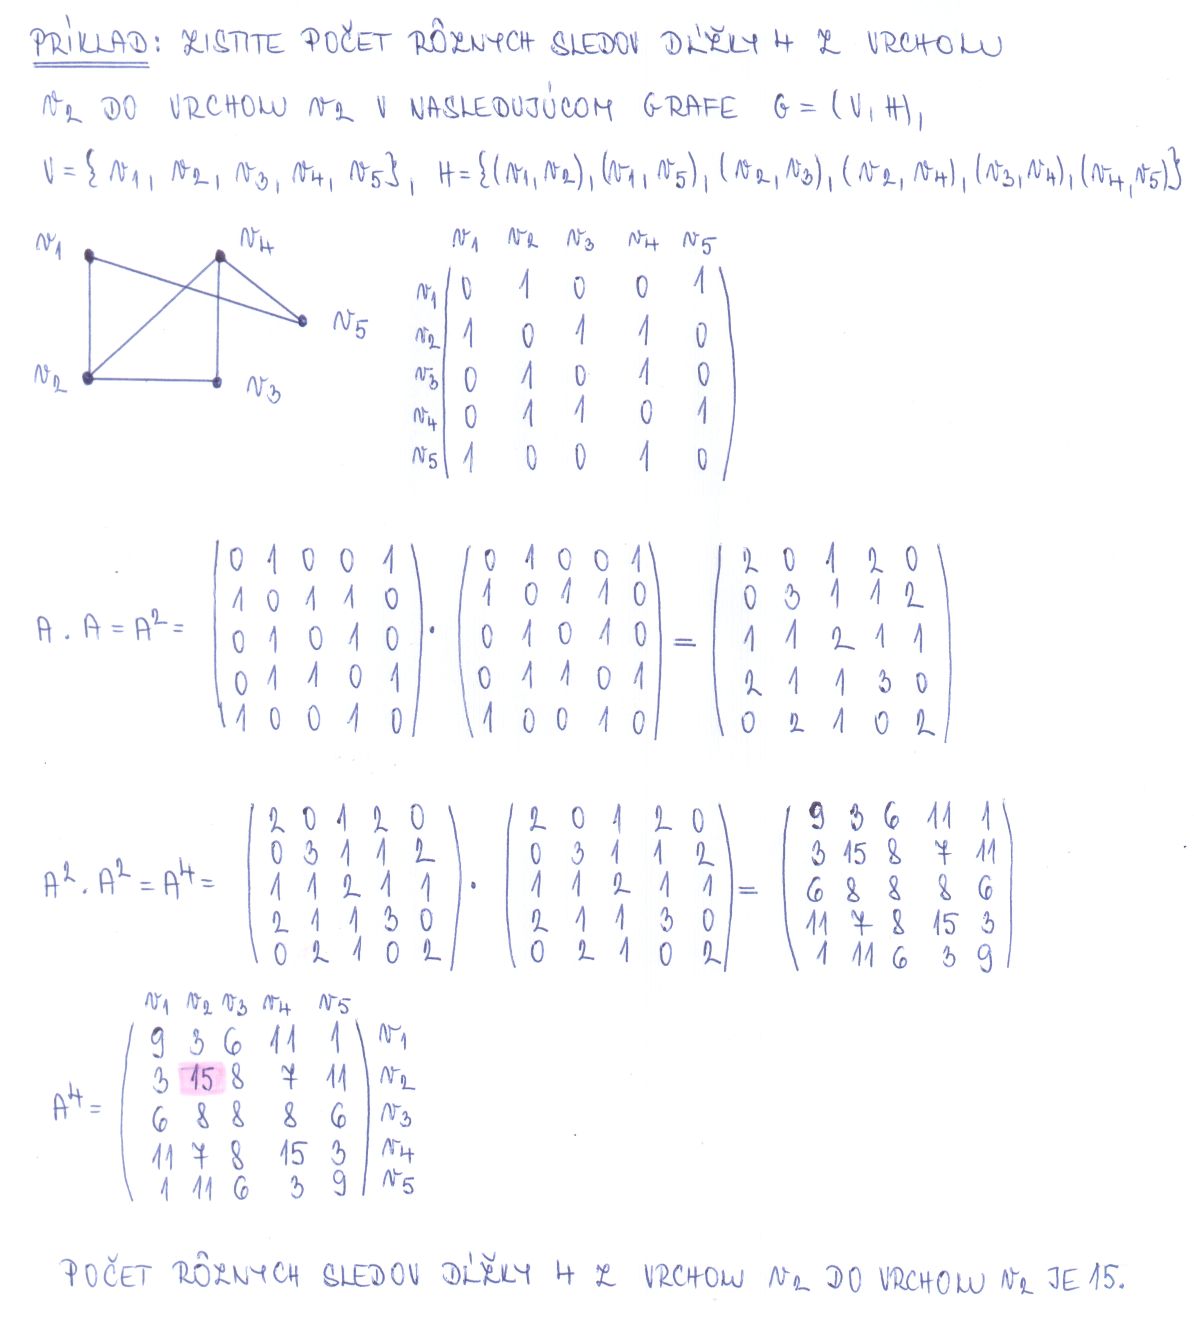 PRÍKLAD: ZISTITE POČET RÔZNYCH SLEDOV DĹŽKY 4 Z VRCHOLU
v2 DO VRCHOLU v2 V NASLEDUJÚCOM GRAFE G = (V, H),
V = { v1, v2, v3, v4, v5}, H = {(v1, v2), (v1, v5), (v2, v3), (v2, v4), (v3, v4), (v4, v5)}
v1 v4
v5
v2 v3
v1 v2 v3 v4 v5
v1 0 1 0 0 1
v2 1 0 1 1 0
v3 0 1 0 1 0
v4 0 1 1 0 1
v5 1 0 0 1 0
0 1 0 0 1 0 1 0 0 1 2 0 1 2 0
1 0 1 1 0 1 0 1 1 0 0 3 1 1 2
A . A = A² = 0 1 0 1 0 . 0 1 0 1 0 = 1 1 2 1 1
0 1 1 0 1 0 1 1 0 1 2 1 1 3 0
1 0 0 1 0 1 0 0 1 0 0 2 1 0 2
2 0 1 2 0 2 0 1 2 0 9 3 6 11 1
0 3 1 1 2 0 3 1 1 2 3 15 8 7 11
A² . A² = A⁴ = 1 1 2 1 1 . 1 1 2 1 1 = 6 8 8 8 6
2 1 1 3 0 2 1 1 3 0 11 7 8 15 3
0 2 1 0 2 0 2 1 0 2 1 11 6 3 9
v1 v2 v3 v4 v5
9 3 6 11 1 v1
3 15 8 7 11 v2
A⁴ = 6 8 8 8 6 v3
11 7 8 15 3 v4
1 11 6 3 9 v5
POČET RÔZNYCH SLEDOV DĹŽKY 4 Z VRCHOLU v2 DO VRCHOLU v2 JE 15.